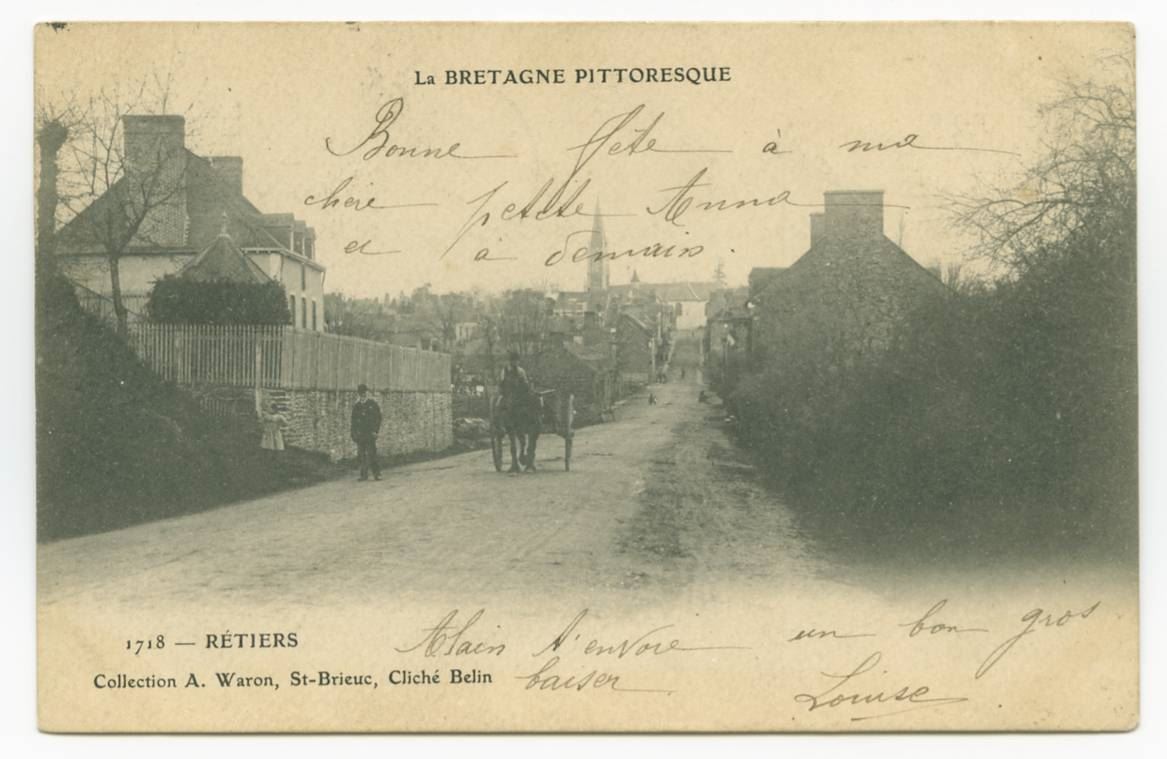 La BRETAGNE PITTORESQUE
Bonne fête à ma
chère petite Anna
et à demain.
1718 — RÉTIERS
Collection A. Waron, St-Brieuc, Cliché Belin
Alain t'envoie un bon gros
baiser
Louise